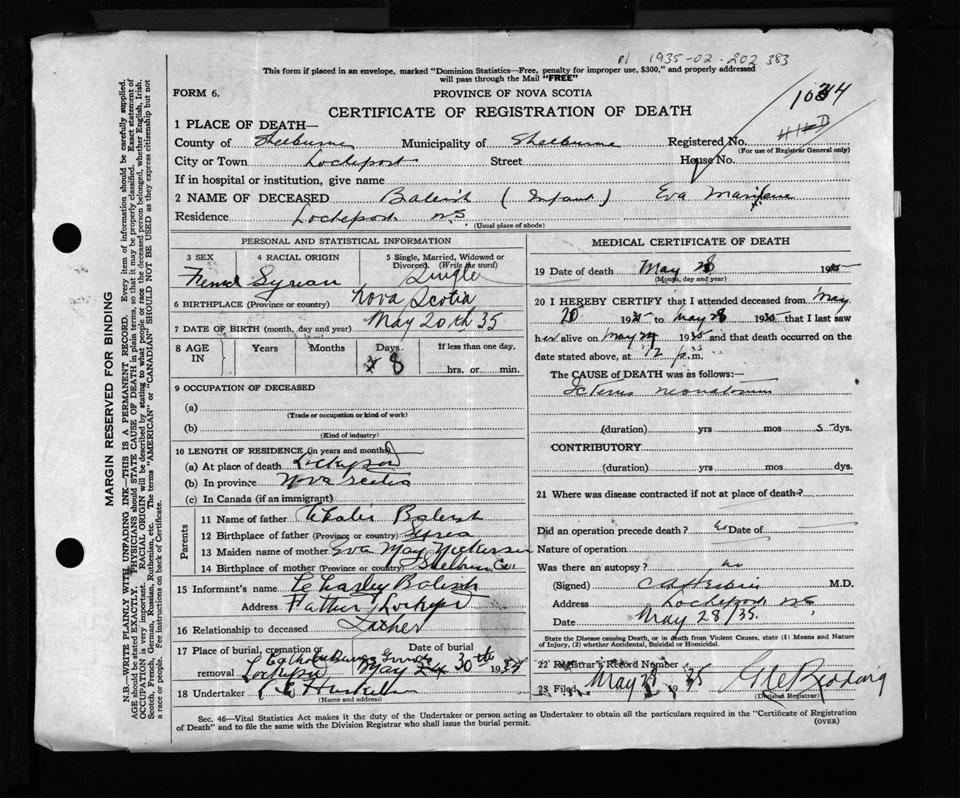 1935-02-202 383
This form if placed in an envelope, marked "Dominion Statistics—Free, penalty for improper use, $300," and properly addressed
will pass through the Mail "FREE"
FORM 6.
PROVINCE OF NOVA SCOTIA
CERTIFICATE OF REGISTRATION OF DEATH
1 PLACE OF DEATH—
County of Shelburne Municipality of Shelburne Registered No.
(For use of Registrar General only)
City or Town Lockeport Street House No.
If in hospital or institution, give name
2 NAME OF DECEASED Balish (Infant) Eva
Residence Lockeport N.S.
(Usual place of abode)
PERSONAL AND STATISTICAL INFORMATION
3 SEX
4 RACIAL ORIGIN
5 Single, Married, Widowed or
Divorced. (Write the word)
Syrian Single
6 BIRTHPLACE (Province or country) Nova Scotia
7 DATE OF BIRTH (month, day and year) May 20th 35
8 AGE IN
Years Months Days If less than one day,
8 hrs. or min.
9 OCCUPATION OF DECEASED
(a)
(Trade or occupation or kind of work)
(b)
(Kind of industry)
10 LENGTH OF RESIDENCE (in years and months)
(a) At place of death Lockeport
(b) In province Nova Scotia
(c) In Canada (if an immigrant)
Parents
11 Name of father Balish
12 Birthplace of father (Province or country) Syria
13 Maiden name of mother Eva May Nickerson
14 Birthplace of mother (Province or country) Shelburne Co.
15 Informant's name Charley Balish
Address Father Lockeport
16 Relationship to deceased Father
17 Place of burial, cremation or
removal Lockeport
Date of burial
May 30th 19
18 Undertaker
(Name and address)
MEDICAL CERTIFICATE OF DEATH
19 Date of death May 28 1935
(Month, day and year)
20 I HEREBY CERTIFY that I attended deceased from May
20 1935 to May 28 1935 that I last saw
her alive on May 1935 and that death occurred on the
date stated above, at 12 p.m.
The CAUSE of DEATH was as follows:—
Icterus neonatorum
(duration) yrs mos 5 dys.
CONTRIBUTORY
(duration) yrs mos dys.
21 Where was disease contracted if not at place of death?
Did an operation precede death? no Date of
Nature of operation
Was there an autopsy? no
(Signed) M.D.
Address Lockeport N.S.
Date May 28/35.
State the Disease causing Death, or in death from Violent Causes, state (1) Means and Nature
of Injury, (2) whether Accidental, Suicidal or Homicidal.
22 Registrar's Record Number
23 Filed May 1935
(Division Registrar)
Sec. 46—Vital Statistics Act makes it the duty of the Undertaker or person acting as Undertaker to obtain all the particulars required in the "Certificate of Registration
of Death" and to file the same with the Division Registrar who shall issue the burial permit.
(OVER)
MARGIN RESERVED FOR BINDING
N.B.—WRITE PLAINLY WITH UNFADING INK—THIS IS A PERMANENT RECORD. Every item of information should be carefully supplied.
AGE should be stated EXACTLY. PHYSICIANS should STATE CAUSE OF DEATH in plain terms, so that it may be properly classified. Exact statement of
OCCUPATION is very important. RACIAL ORIGIN will be described by stating to what people or race the deceased person belonged, whether English, Irish,
Scotch, French, German, Russian, Ruthenian, etc. The terms "AMERICAN" or "CANADIAN" SHOULD NOT BE USED as they express citizenship but not
a race or people. See instructions on back of Certificate.